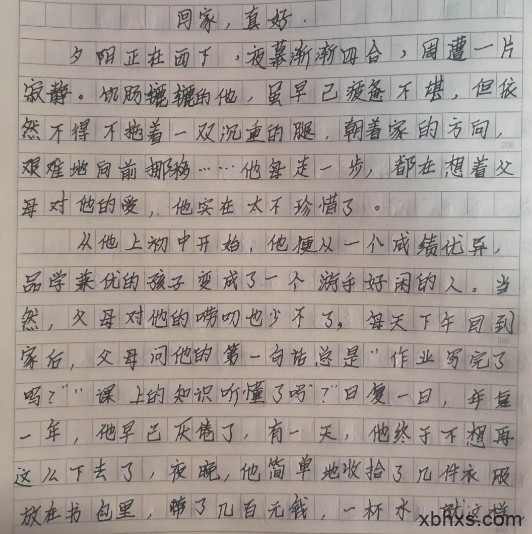 回家，真好.
夕阳正在西下，夜幕渐渐四合，周遭一片
寂静。饥肠辘辘的他，虽早已疲惫不堪，但依
然不得不拖着一双沉重的腿，朝着家的方向，
艰难地向前挪移……他每走一步，都在想着父
母对他的爱，他实在太不珍惜了。
从他上初中开始，他便从一个成绩优异，
品学兼优的孩子变成了一个游手好闲的人。当
然，父母对他的唠叨也少不了。每天下午回到
家后，父母问他的第一句话总是“作业写完了
吗？”“课上的知识听懂了吗？”日复一日，年复
一年，他早已厌倦了，有一天，他终于不想再
这么下去了，夜晚，他简单地收拾了几件衣服
放在书包里，带了几百元钱，一杯水，就这样
xbhxs.com